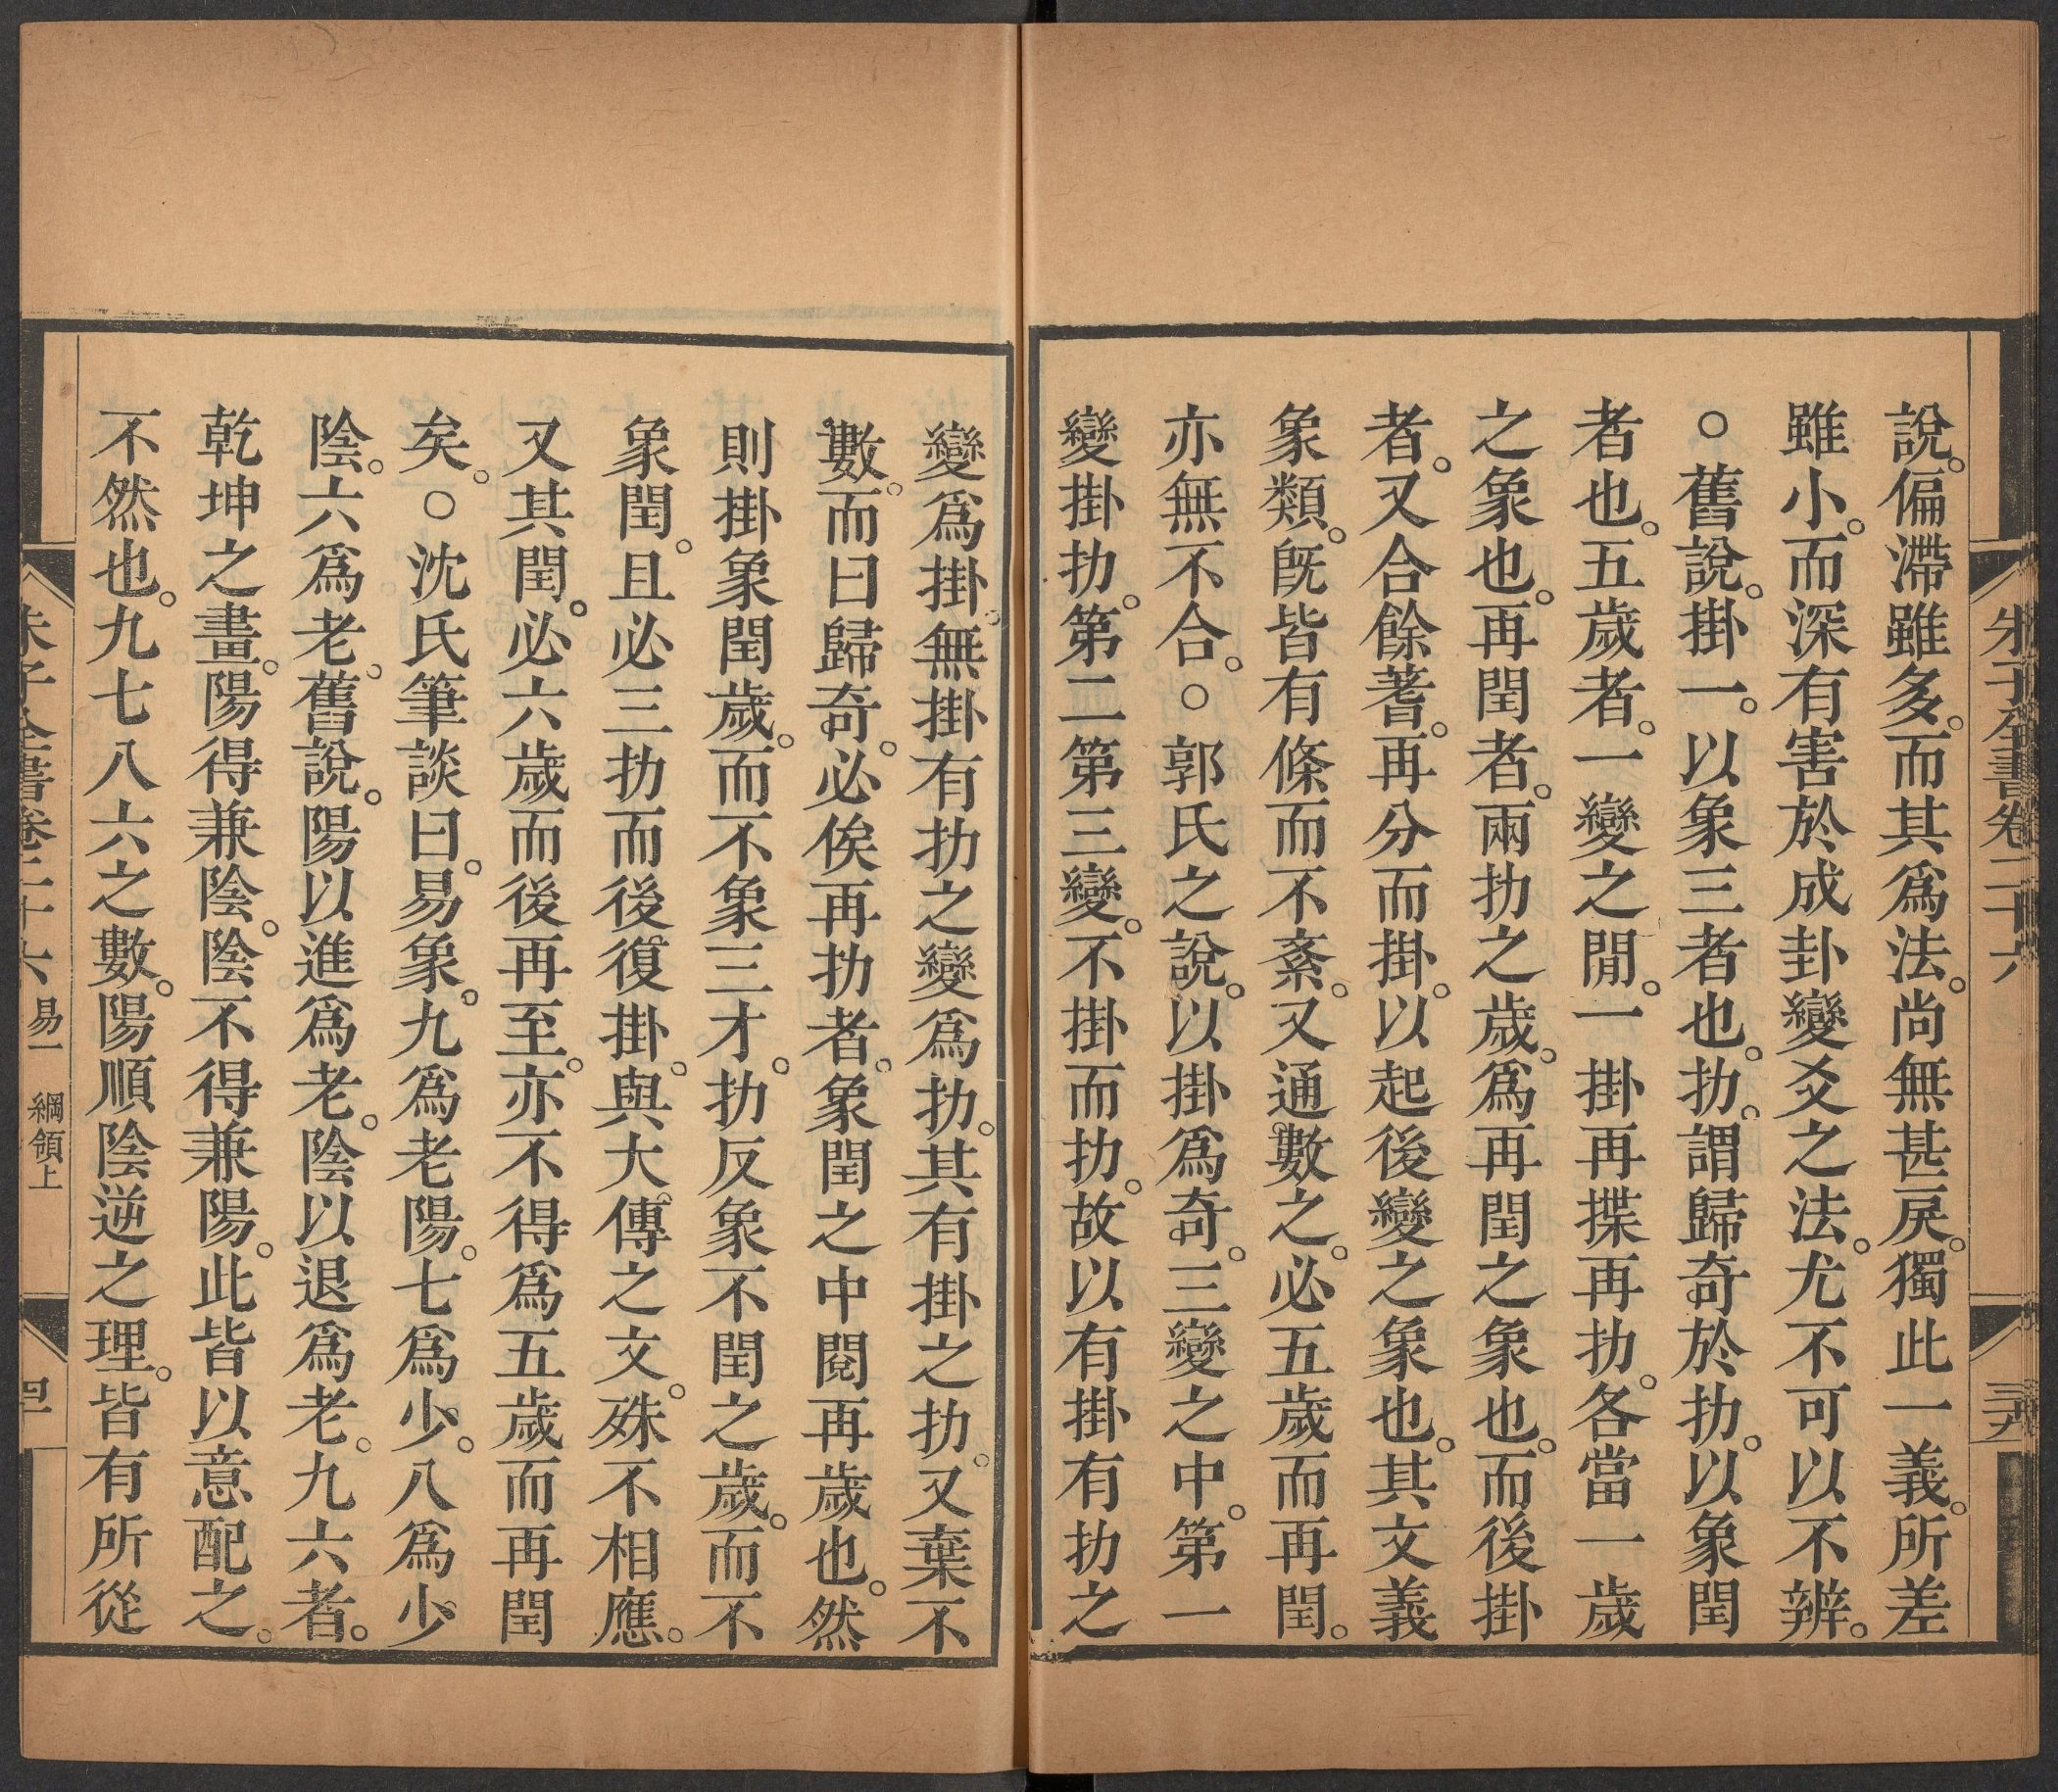 朱子全書卷二十六
三九
說。偏滯雖多。而其爲法。尚無甚戾。獨此一義。所差
雖小。而深有害於成卦變爻之法。尤不可以不辨。
○舊說。掛一。以象三者也。扐。謂歸奇於扐。以象閏
者也。五歲者。一變之閒。一掛再揲再扐。各當一歲
之象也。再閏者。兩扐之歲。爲再閏之象也。而後掛
者。又合餘蓍。再分而掛。以起後變之象也。其文義
象類。旣皆有條而不紊。又通數之。必五歲而再閏。
亦無不合。○郭氏之說。以掛爲奇。三變之中。第一
變掛扐。第二第三變。不掛而扐。故以有掛有扐之
變爲掛。無掛有扐之變爲扐。其有掛之扐。又棄不
數。而曰歸奇。必俟再扐者。象閏之中閱再歲也。然
則掛象閏歲。而不象三才。扐反象不閏之歲。而不
象閏。且必三扐而後復掛。與大傳之文。殊不相應。
又其閏。必六歲而後再至。亦不得爲五歲而再閏
矣。○沈氏筆談曰。易象。九爲老陽。七爲少。八爲少
陰。六爲老。舊說。陽以進爲老。陰以退爲老。九六者。
乾坤之畫。陽得兼陰。陰不得兼陽。此皆以意配之。
不然也。九七八六之數。陽順陰逆之理。皆有所從
朱子全書卷二十六 易一 綱領上